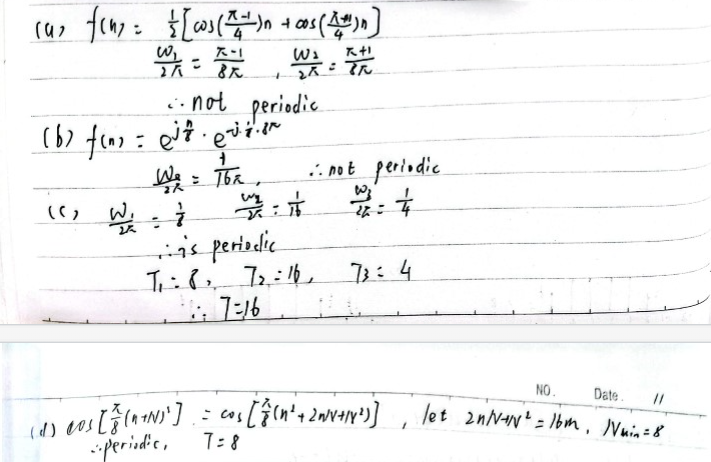 (a) f(n) = 1/2 [cos((π-1)/4)n + cos((π+1)/4)n]
ω₁/2π = (π-1)/8π , ω₂/2π = (π+1)/8π
∴ not periodic
(b) f(n) = e^{j n/8} · e^{-j·1/8·8π}
ω₀/2π = 1/16π , ∴ not periodic
(c) ω₁/2π = 1/8 ω₂/2π = 1/16 ω₃/2π = 1/4
∴ is periodic
T₁ = 8, T₂ = 16, T₃ = 4
∴ T=16
NO. Date. //
(d) cos[π/8 (n+N)²] = cos[π/8 (n²+2nN+N²)] , let 2nN+N² = 16m, Nmin=8
∴ periodic, T=8